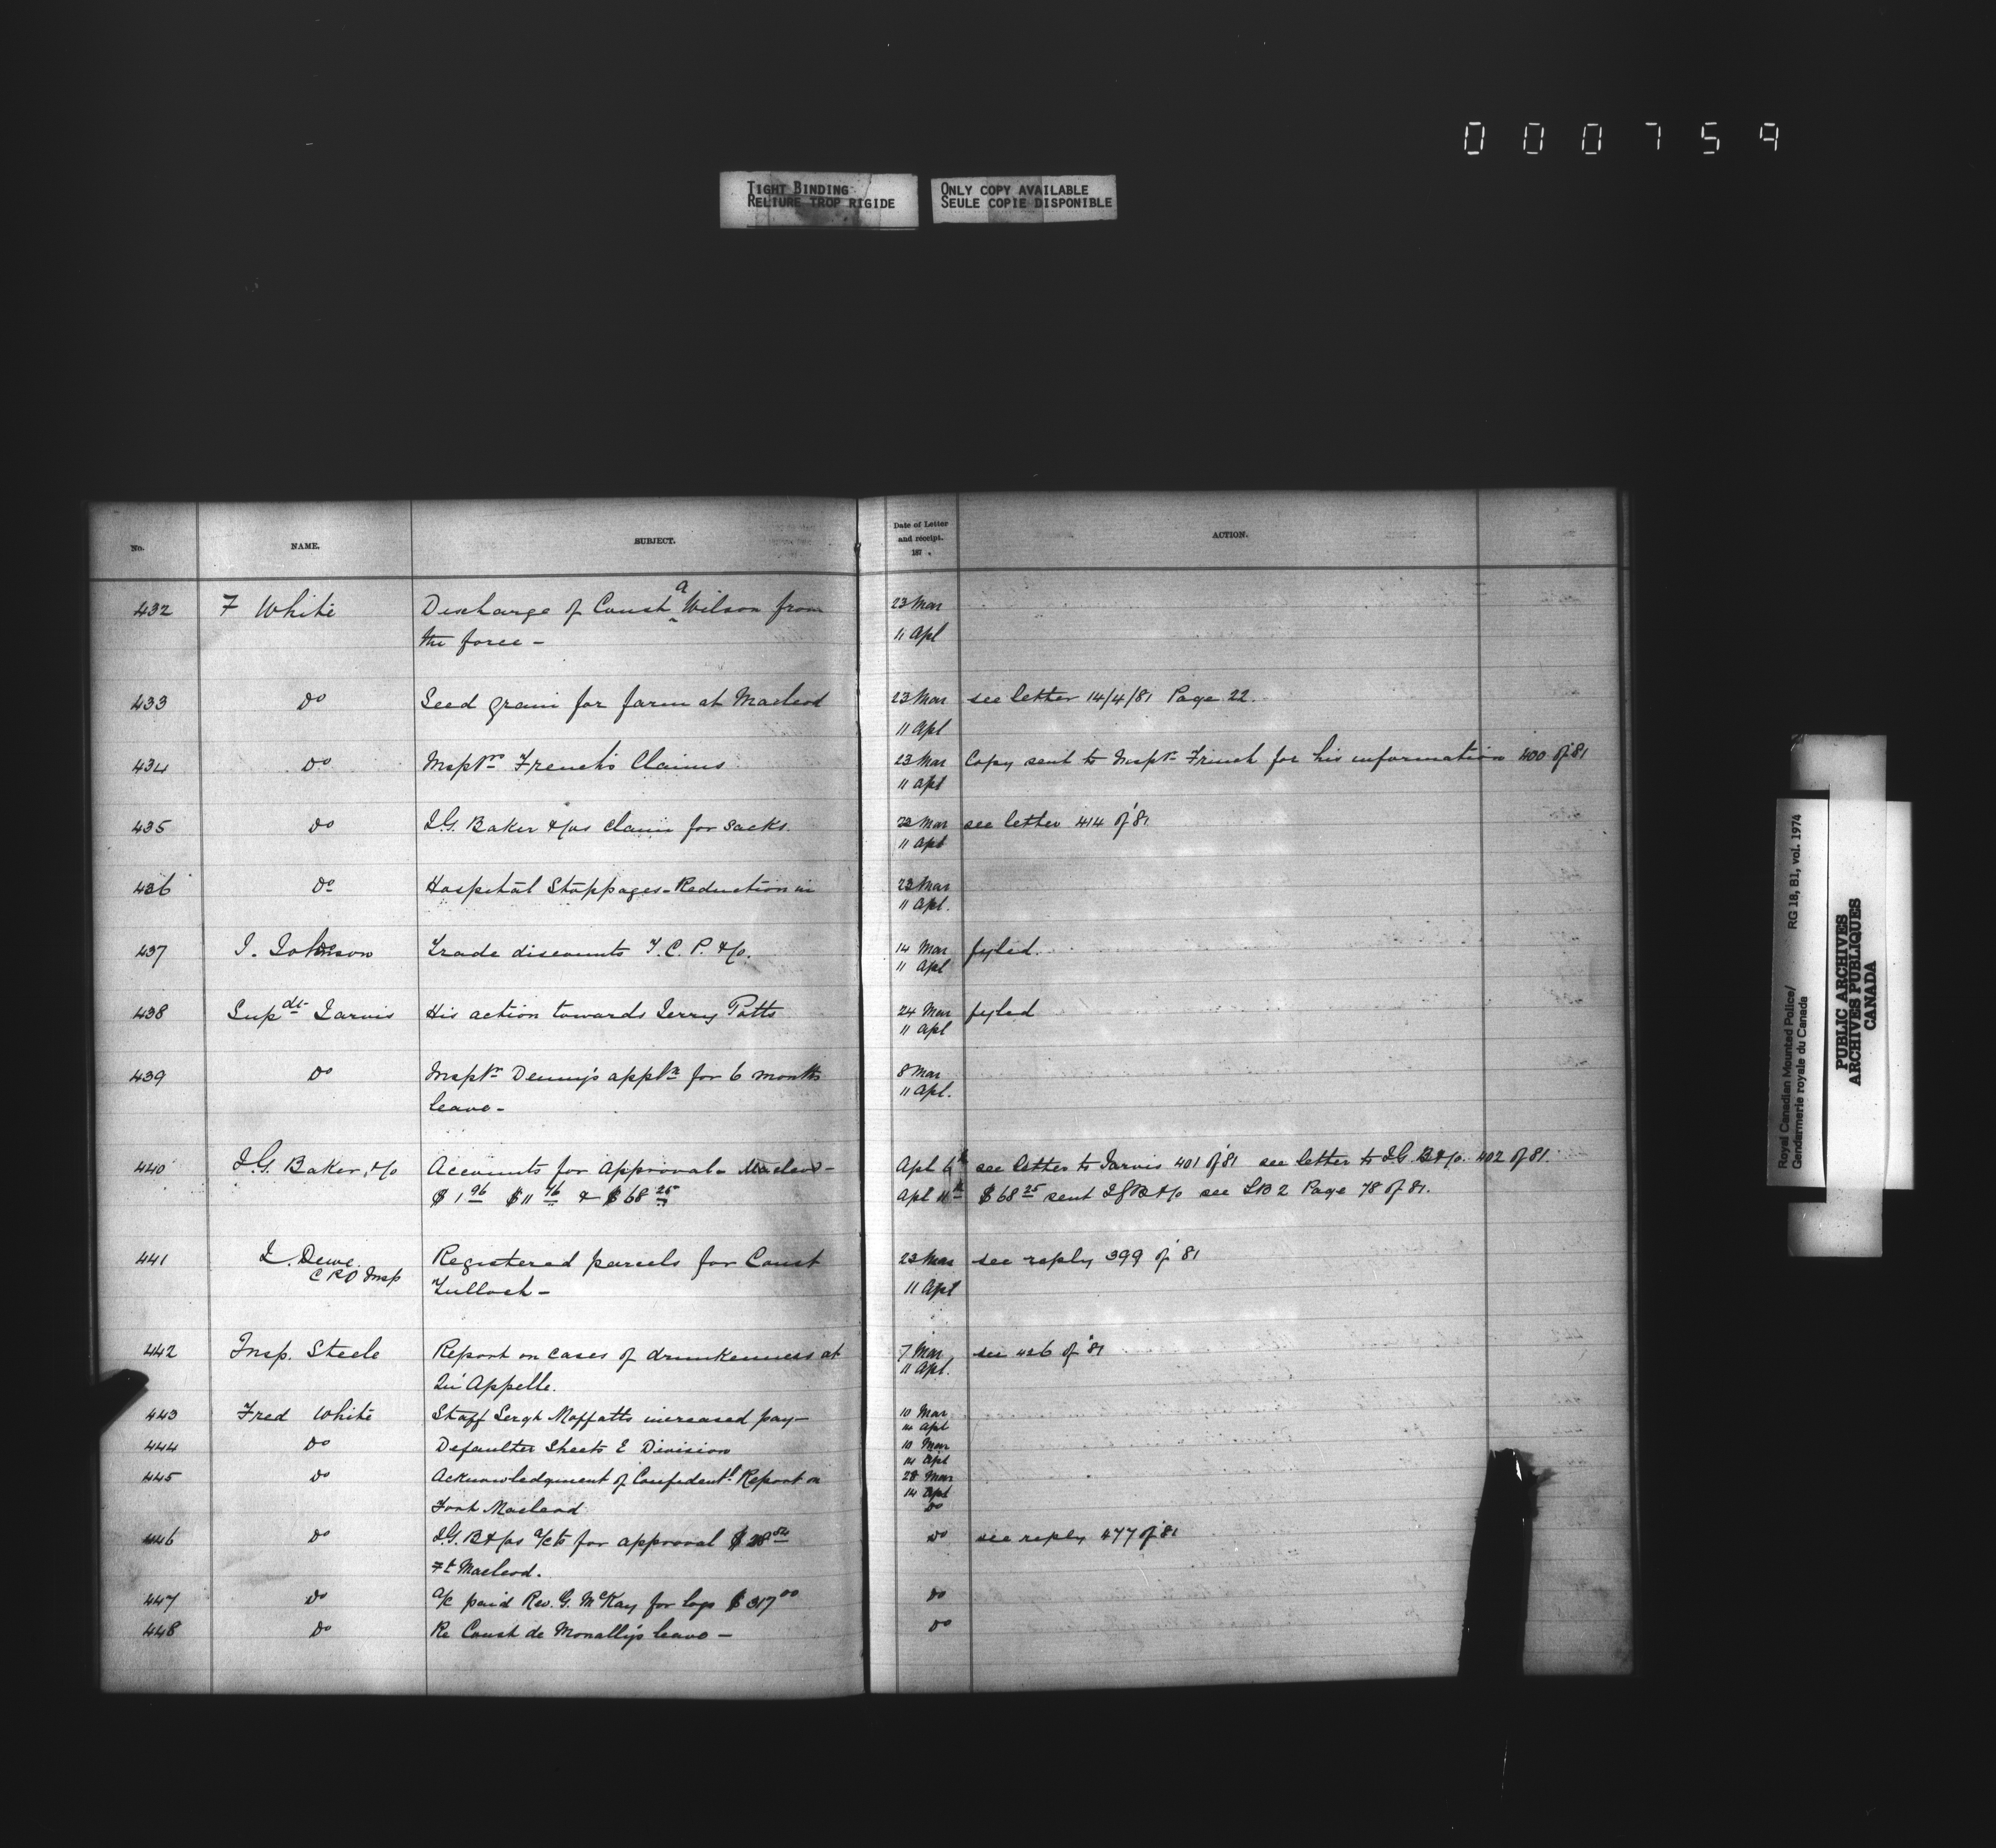 000759
TIGHT BINDING
RELIURE TROP RIGIDE
ONLY COPY AVAILABLE
SEULE COPIE DISPONIBLE
No. NAME. SUBJECT. Date of Letter and receipt. 187 . ACTION.
432 F White Discharge of Const a Wilson from 23 Mar
the force - 11 Apl
433 Do Seed grain for farm at Macleod 23 Mar see letter 14/4/81 Page 22.
11 Apl
434 Do Insptr French's Claims 23 Mar Copy sent to Inspr French for his information 400 of 81
11 Apl
435 Do I.G. Baker &Cos claim for sacks. 23 Mar see letter 414 of '81
11 Apl
436 Do Hospital Stoppages - Reduction in 23 Mar
11 Apl.
437 J. Johnson Trade discounts T.C.P. &Co. 14 Mar fyled.
11 Apl
438 Supdt Jarvis His action towards Jerry Potts 24 Mar fyled
11 Apl
439 Do Insptr Denny's appln for 6 months 8 Mar
leave - 11 Apl.
440 I.G. Baker, &Co Accounts for approval - Macleod - Apl 6th see letter to Jarvis 401 of 81 see letter to I.G. B&Co. 402 of 81.
$1 96 $11 76 & $68 25 Apl 11th $68 25 sent IGB&Co see LB 2 Page 78 of 81.
441 J. Dewe Registered parcels for Const 23 Mar see reply 399 of '81
C P O Insp Tulloch - 11 Apl
442 Insp. Steele Report on cases of drunkenness at 7 Mar see 426 of '81
Qu'Appelle. 11 Apl.
443 Fred White Staff Sergt Moffatts increased pay - 10 Mar
14 Apl
444 Do Defaulter Sheets E Division 10 Mar
14 Apl
445 Do Acknowledgment of Confidentl Report on 28 Mar
14 Apl
Fort Macleod Do
446 Do I.G. B&Cos a/cts for approval $28 Do see reply 477 of '81
Ft Macleod.
447 Do a/c paid Rev. G. McKay for logs $317 00 Do
448 Do Re Const de Monally's leave - Do
Royal Canadian Mounted Police/ RG 18, B1, vol. 1974
Gendarmerie royale du Canada
PUBLIC ARCHIVES
ARCHIVES PUBLIQUES
CANADA